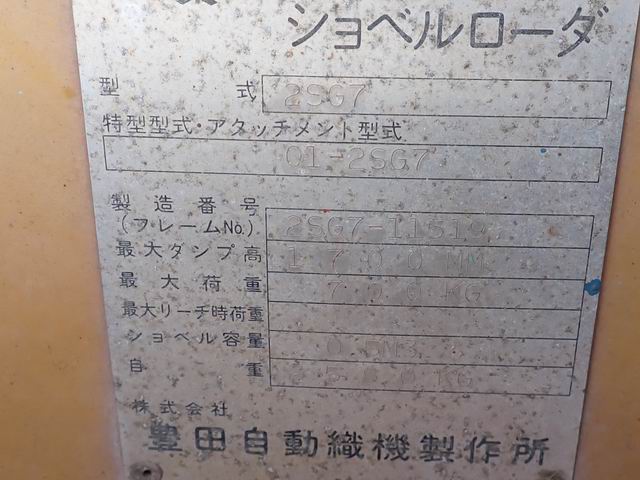 ショベルローダ
型 式 2SG7
特型型式・アタッチメント型式
01-2SG7
製造番号
(フレームNo.)
最大ダンプ高 1700MM
最大荷重 KG
最大リーチ時荷重
ショベル容量
自 重 KG
株式会社
豊田自動織機製作所